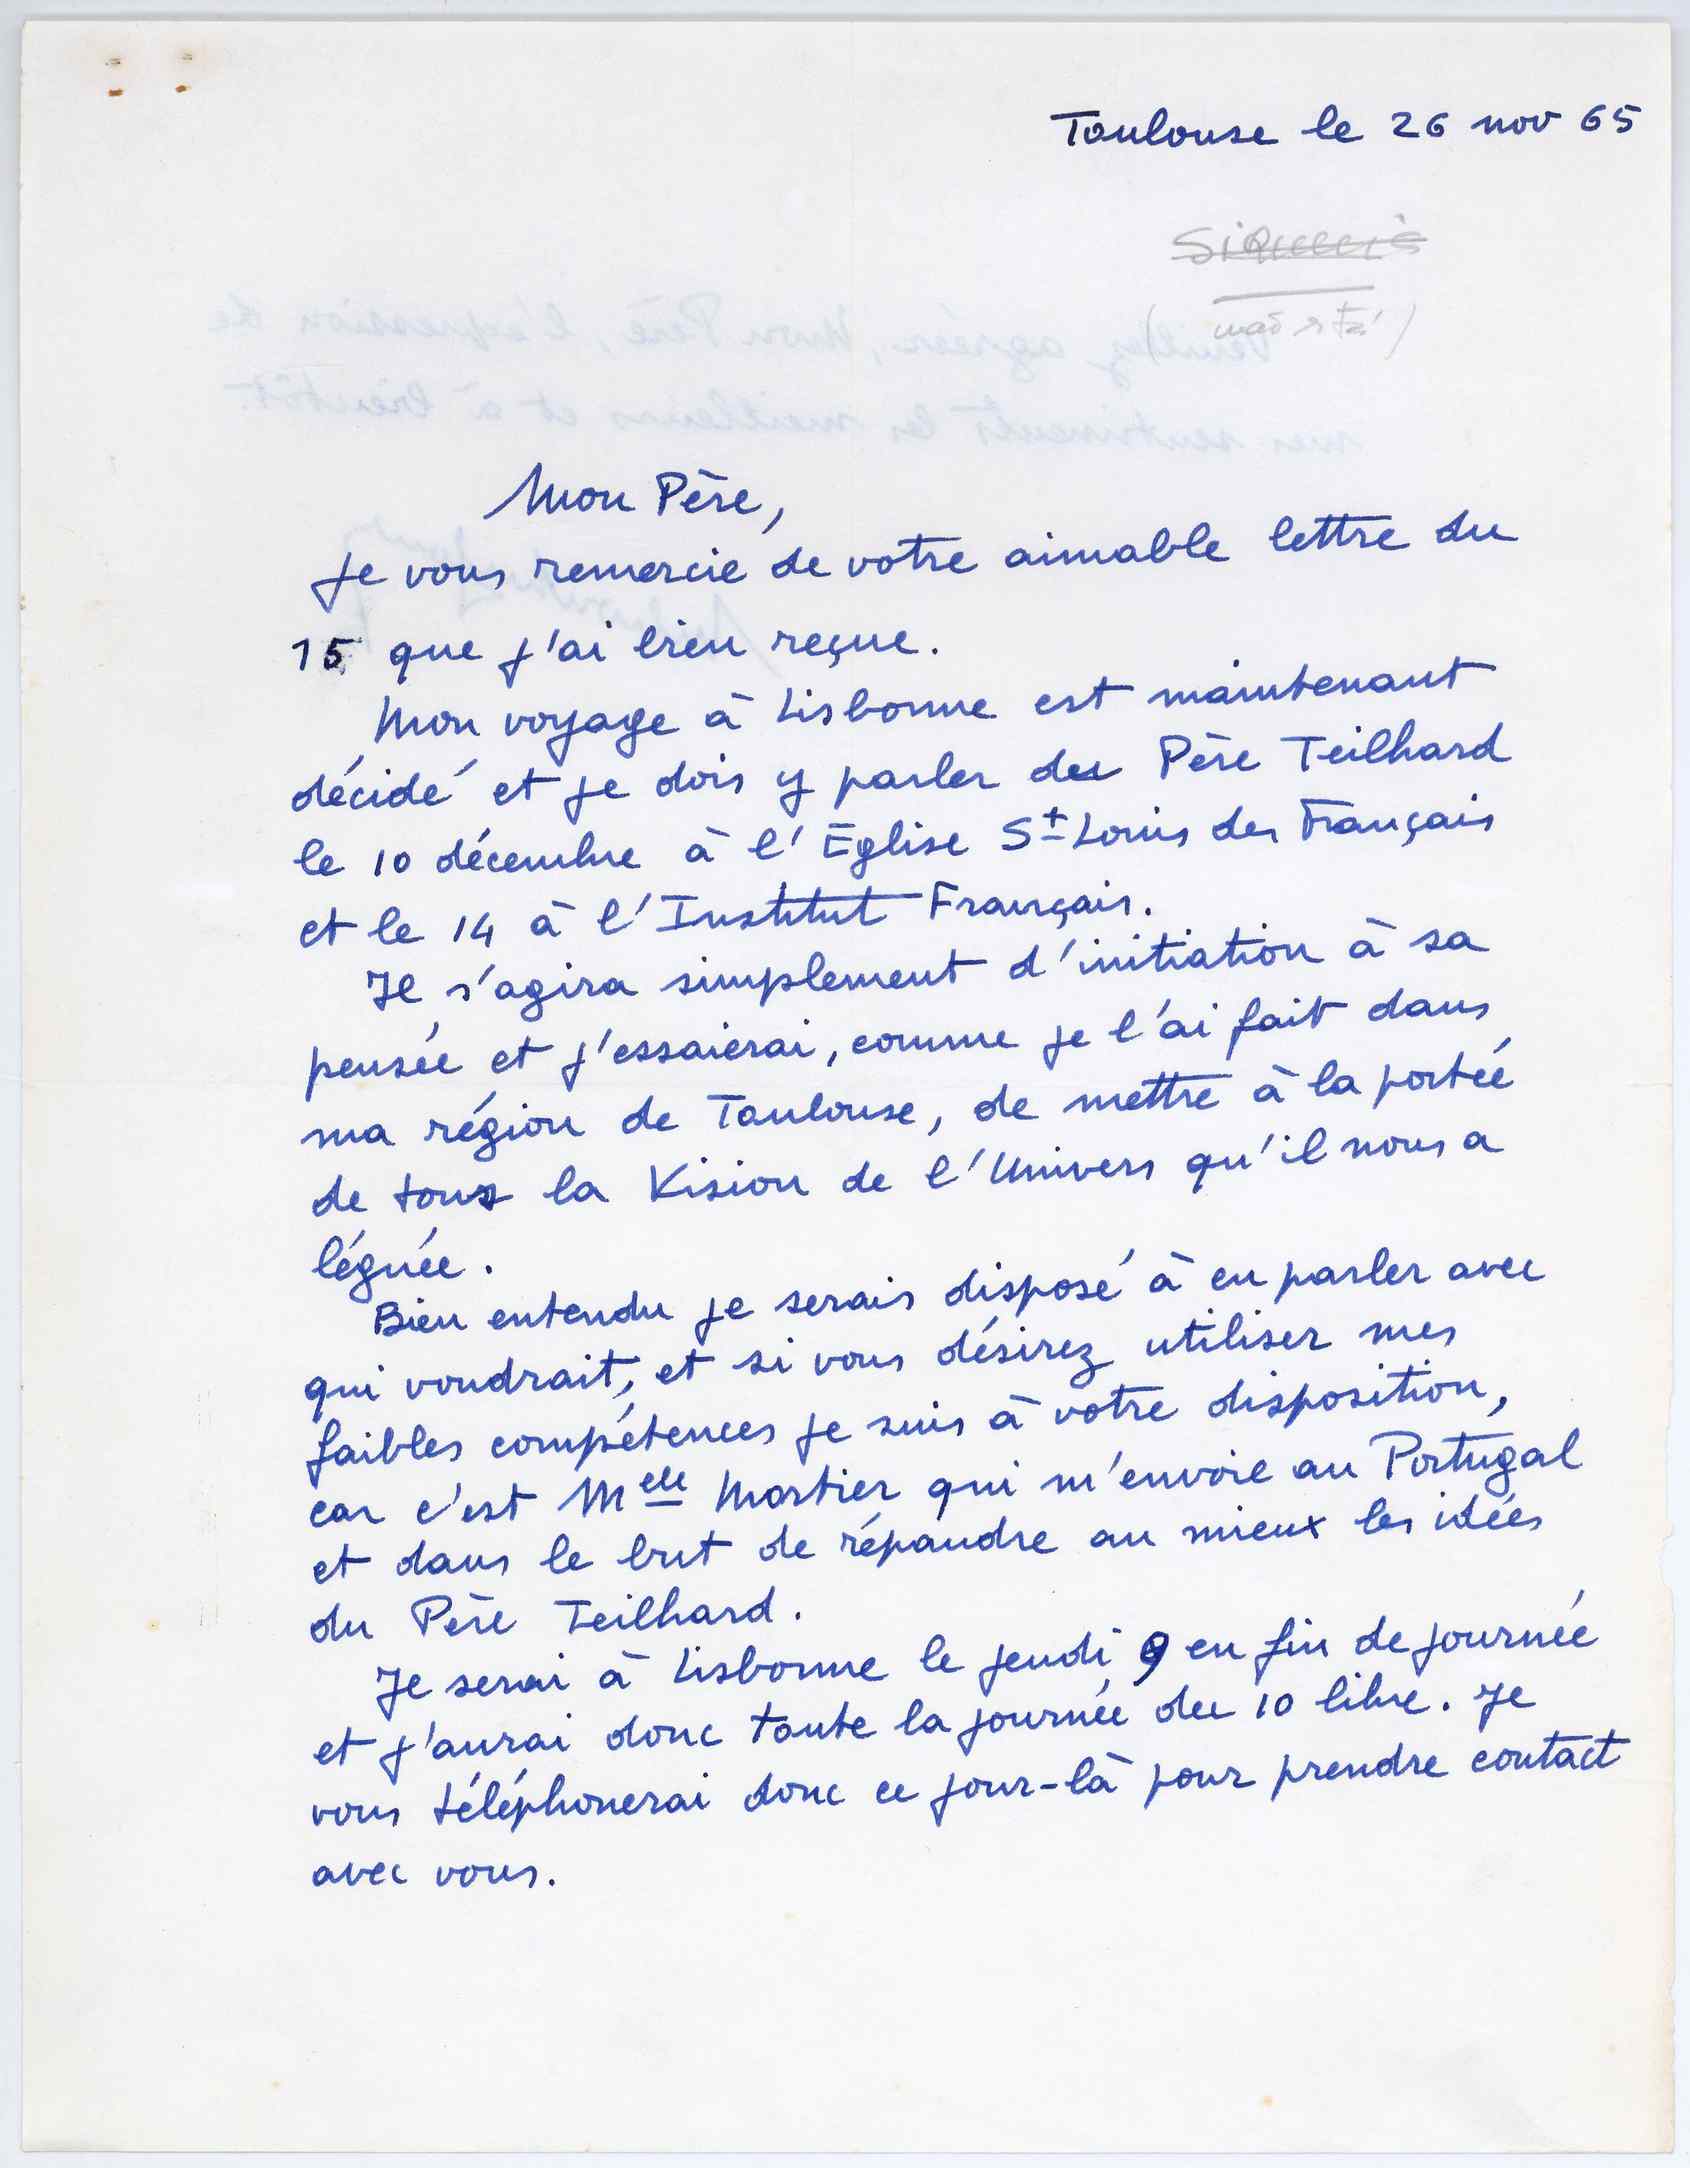 Toulouse le 26 nov 65
Mon Père,
Je vous remercie de votre aimable lettre du
15 que j'ai bien reçue.
Mon voyage à Lisbonne est maintenant
décidé et je dois y parler du Père Teilhard
le 10 décembre à l'Eglise St Louis des Français
et le 14 à l'Institut Français.
Il s'agira simplement d'initiation à sa
pensée et j'essaierai, comme je l'ai fait dans
ma région de Toulouse, de mettre à la portée
de tous la Vision de l'Univers qu'il nous a
léguée.
Bien entendu je serais disposé à en parler avec
qui voudrait, et si vous désirez utiliser mes
faibles compétences je suis à votre disposition,
car c'est Melle Mortier qui m'envoie au Portugal
et dans le but de répandre au mieux les idées
du Père Teilhard.
Je serai à Lisbonne le jeudi 9 en fin de journée
et j'aurai donc toute la journée du 10 libre. Je
vous téléphonerai donc ce jour-là pour prendre contact
avec vous.